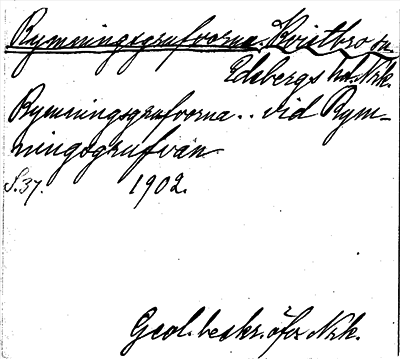 Rymningsgrufvorna. Kvistbro sn.
Edsbergs hd. Nrk.
Rymningsgrufvorna .. vid Rym-
ningsgrufvan
S. 37. 1902.
Geol. beskr. öfver Nrk.